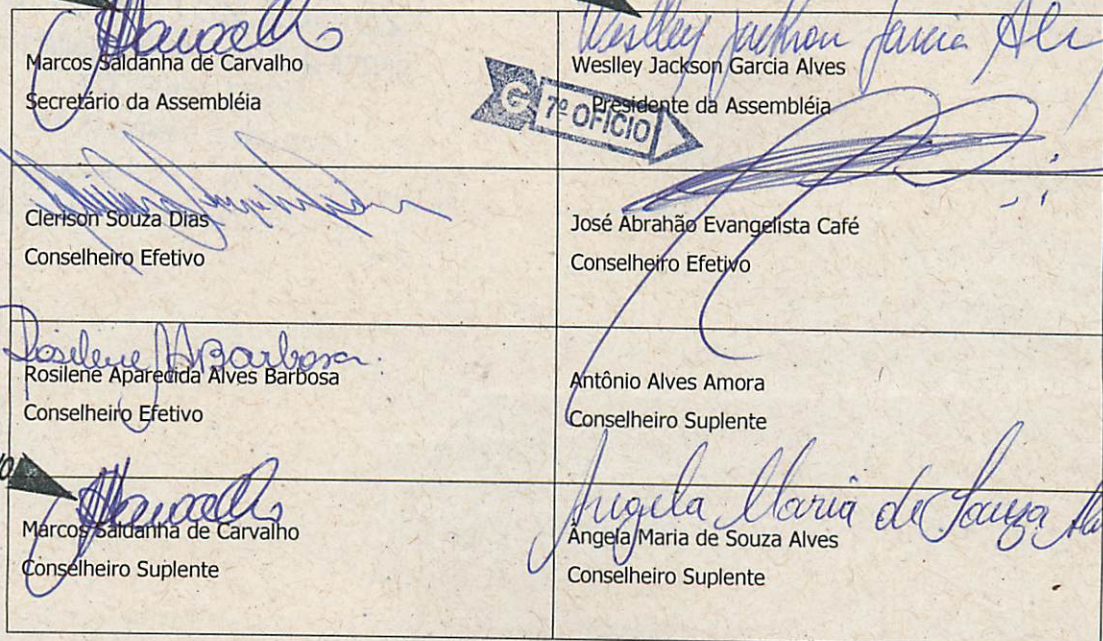 Marcos Saldanha de Carvalho
Secretário da Assembléia
Weslley Jackson Garcia Alv
Weslley Jackson Garcia Alves
Presidente da Assembléia
7º OFÍCIO
Clerison Souza Dias
Conselheiro Efetivo
José Abrahão Evangelista Café
Conselheiro Efetivo
Rosilene A Barbosa.
Rosilene Aparecida Alves Barbosa
Conselheiro Efetivo
Antônio Alves Amora
Conselheiro Suplente
Marcos Saldanha de Carvalho
Conselheiro Suplente
Angela Maria de Souza
Ângela Maria de Souza Alves
Conselheiro Suplente